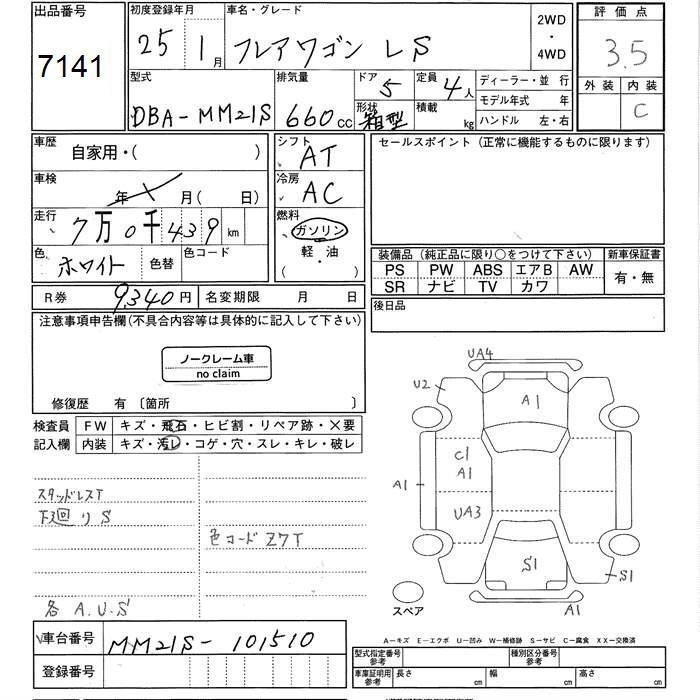 出品番号 初度登録年月 車名・グレード 2WD 評価点
7141 25 1月 フレアワゴン LS ・ 3.5
4WD
型式 排気量 ドア 5 定員 4人 ディーラー・並 行 外装 内装
DBA-MM21S 660cc 形状 箱型 積載 kg モデル年式 年 C
ハンドル 左・右
車歴 自家用・( ) シフト AT セールスポイント (正常に機能するものに限ります)
車検 年 月( 日) 冷房 AC
走行 7万0千439km 燃料 ガソリン
軽・油
( )
色 ホワイト 色替 色コード
装備品 (純正品に限り○をつけて下さい) 新車保証書
PS PW ABS エアB AW 有・無
SR ナビ TV カワ
R券 9,340円 名変期限 月 日 後日品
注意事項申告欄(不具合内容等は具体的に記入して下さい)
ノークレーム車
no claim
修復歴 有 〔箇所 〕
検査員 FW キズ・飛石・ヒビ割・リペア跡・×要
記入欄 内装 キズ・汚レ・コゲ・穴・スレ・キレ・破レ
UA4
U2
A1
C1
A1
A1
UA3
S1
S1
A1
スペア
スタッドレスT
下廻り S
色コード Z7T
各 A.U.S
A－キズ E－エクボ U－凹み W－補修跡 S－サビ C－腐食 XX－交換済
車台番号 MM21S-101510
登録番号
型式指定番号 参考 種別区分番号 参考
車庫証明用 参考 長さ cm 幅 cm 高さ cm